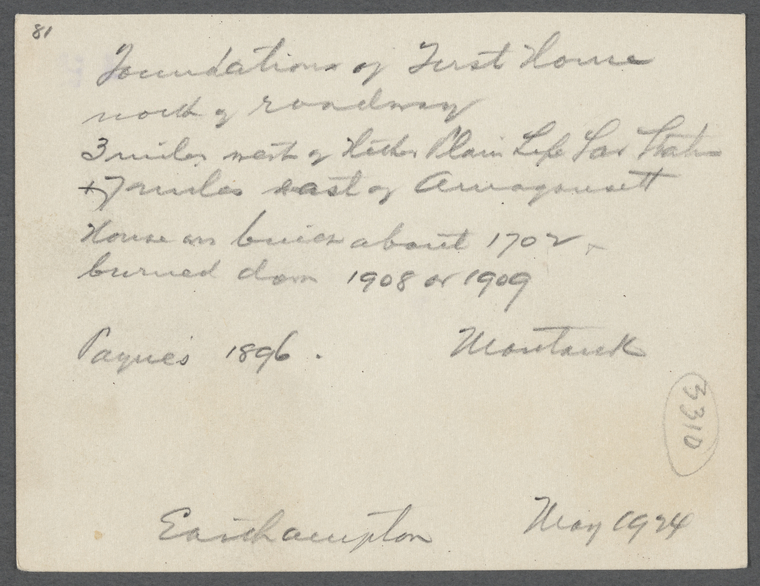 81
Foundations of First House
north of roadway
3 miles west of Hither Plain Life Sav Statn
+ 7 miles east of Amagansett
House was built about 1702
burned down 1908 or 1909
Payne's 1896. Montauk
3310
Easthampton May 1924